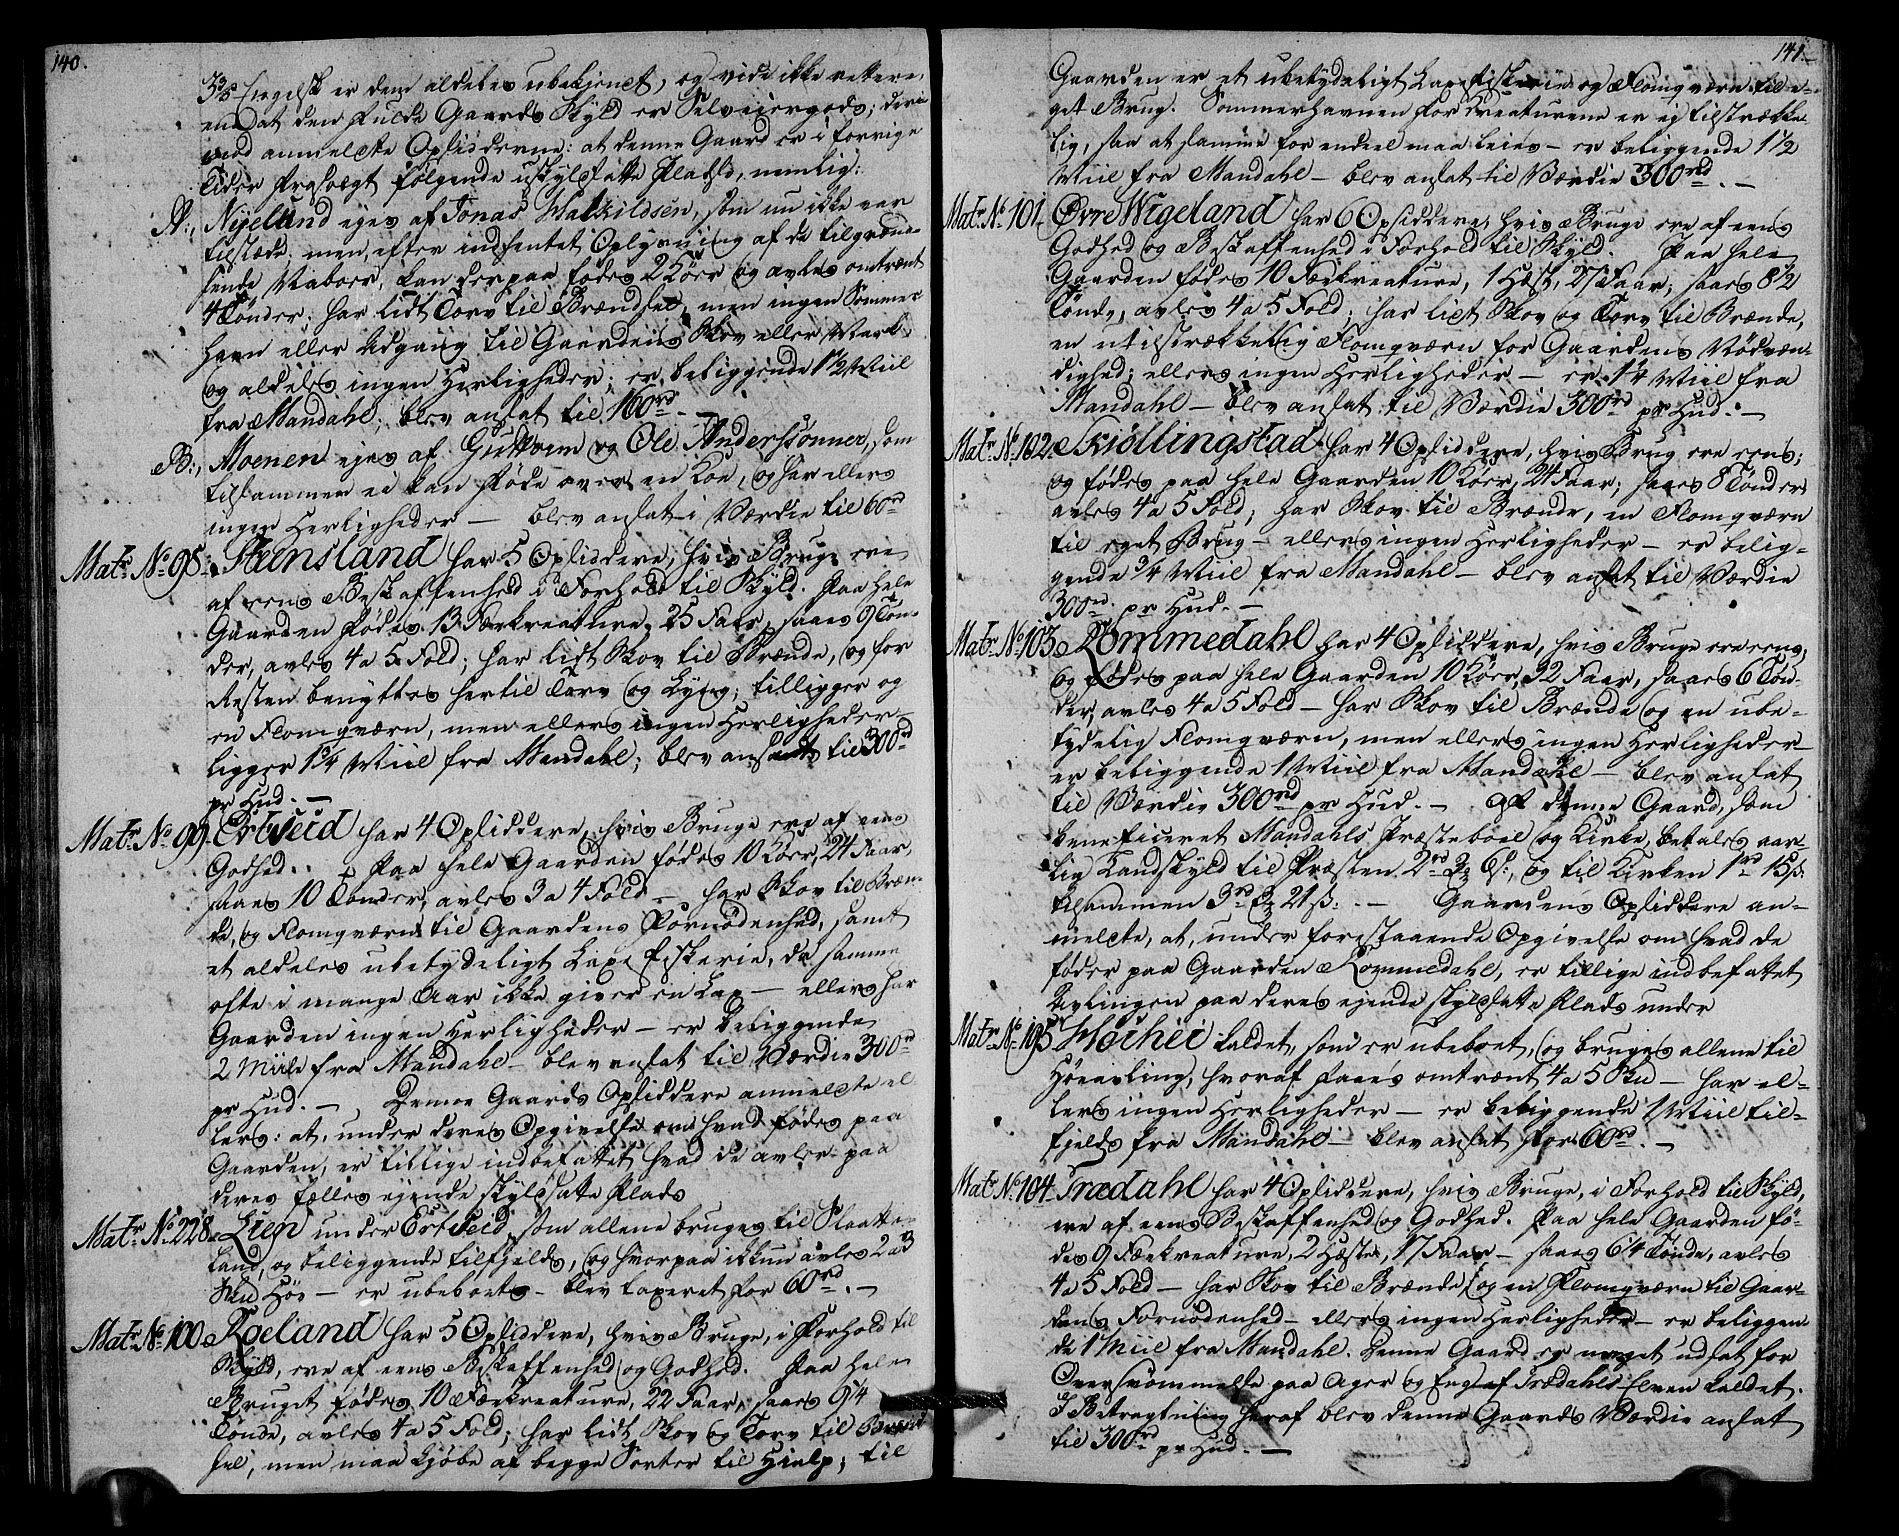 140.
er dem aldeles ubekjendt, og vide ikke rettere,
end at den fulde Gaards Skyld er Selveiergods; derimod
anmeldte Opsidderne: at denne Gaard er i forrige
Tider fraSolgt følgende Skyldsatte Pladse, nemlig:
A:, Nyelund ejes af Jonas, som nu ikke var
tilstæde; men, efter indhentet Oplysning af de tilgrænd-
sende Naboer, kan derpaa fødes 2 Kör og avles omtrent
4 Tönder; har lidt Torv til Brændsel, men ingen Sommer-
havn eller Adgang til Gaardens Skov eller Mark
og aldeles ingen Herligheder; er beliggende 1½ Miil
fra Mandahl; blev ansat til 160rd. —
B:, Moenen ejes af Guttorm og Ole Anderssönner, som
tilsammen ei kan føde over en Koe, og har ellers
ingen Herligheder — blev ansat i Værdie til 60rd
Matr No 98. Steensland har 5 Opsiddere, hvis Bruge ere
af eens Beskaffenhed i Forhold til Skyld. Paa hele
Gaarden fødes 13 Færkreature, 25 Faar, saaes 9 Tön-
der, avles 4 a 5 Fold; har lidt Skov til Brænde, og for
Resten benyttes hertil Torv og Lyng; tilligger og
en Flomqværn, men ellers ingen Herligheder —
ligger 1¾ Miil fra Mandahl; blev ansadt til 300rd
pr Hud. —
Matr No 99. Ertzeid har 4 Opsiddere, hvis Bruge ere af eens
Godhed. Paa hele Gaarden fødes 10 Köer, 24 Faar,
saaes 10 Tönder, avles 3 a 4 Fold — har Skov til Bræn-
de, og Flomqværn til Gaardens Fornödenhed, samt
et aldeles ubetydeligt Laxefiskerie, da samme
ofte i mange Aar ikke giver en Lax — ellers har
Gaarden ingen Herligheder — er beliggende
2 Miile fra Mandahl — blev ansat til Værdie 300rd
pr Hud. — Denne Gaards Opsiddere anmeldte el-
lers: at, under deres Opgivelse om hvad fødes paa
Gaarden, er tillige indbefattet hvad de avler paa
deres fælles ejende skyldsatte Plads
Matr No 228. Lien under Ertzeid, som allene bruges til Slaatte-
land, og beliggende tilfjelds, og hvorpaa ikkun avles 2 a 3
Sku Höe — er ubeboet — blev taxeret for 60rd. —
Matr No 100. Roeland har 5 Opsiddere, hvis Bruge, i Forhold til
Skyld, ere af eens Beskaffenhed og Godhed. Paa hele
Bruget fødes 10 Færkreature, 22 Faar, saaes 9¼
Tönde, avles 4 a 5 Fold; har lidt Skov og Torv til Brænd-
sel, men maa kjöbe af begge Sorter til Hielp; til
141.
Gaarden er et ubetydeligt Laxefiskerie og Flomqværn til e-
get Brug. Sommerhavnen for Creaturene er ej tilstrække-
lig, saa at samme for endeel maa leies — er beliggende 1½
Miil fra Mandahl — blev ansat til Værdie 300rd. —
Matr No 101. Övre Wigeland har 6 Opsiddere, hvis Bruge ere af eens
Godhed og Beskaffenhed i Forhold til Skyld. Paa hele
Gaarden fødes 10 Færkreature, 1 Hæst, 27 Faar; saaes 8½
Tönde, avles 4 a 5 Fold; har lidt Skov og Torv til Brænde,
en utilstrækkelig Flomqværn for Gaardens Nödvæn-
dighed; ellers ingen Herligheder — er 1¼ Miil fra
Mandahl — blev ansat til Værdie 300rd pr Hud. —
Matr No 102. Skiöllingstad har 4 Opsiddere, hvis Brug ere eens;
og fødes paa hele Gaarden 10 Köer, 24 Faar; saaes 8 Tönder
avles 4 a 5 Fold; har Skov til Brænde, en Flomqværn
til eget Brug — ellers ingen Herligheder — er belig-
gende ¾ Miil fra Mandahl — blev ansat til Værdie
300rd. pr Hud. —
Matr No 103. Rommedahl har 4 Opsiddere, hvis Bruge ere eens,
og fødes paa hele Gaarden 10 Köer, 32 Faar, saaes 6 Tön-
der, avles 4 a 5 Fold — har Skov til Brænde og en ube-
tydelig Flomqværn, men ellers ingen Herligheder —
er beliggende 1 Miil fra Mandahl — blev ansat
til Værdie 300rd pr Hud. — Af denne Gaard, som
beneficeret Mandahls Præsteboel og Kirke, betales aar-
lig Landskyld til Præsten 2rd og til Kirken 1rd 15ß:
tilsammen 3rd 21ß: — Gaardens Opsiddere an-
meldte, at, under forestaaende Opgivelse om hvad de
føder paa Gaarden Rommedahl, er tillige indbefattet
Avlingen paa deres ejende skyldsatte Plads under
Matr No 105 kaldet, som er ubeboet, og bruges allene til
Höeavling, hvoraf faaes omtrent 4 a 5 Sku — har el-
lers ingen Herligheder — er beliggende 1 Miil til-
fjelds fra Mandahl — blev ansat for 60rd. —
Matr No 104. Trædahl har 4 Opsiddere, hvis Bruge, i Forhold til Skyld,
ere af eens Beskaffenhed og Godhed. Paa hele Gaarden fö-
des 9 Færkreature, 2 Hæste, 17 Faar — saaes 6¼ Tönde, avles
4 a 5 Fold — har Skov til Brænde, og en Flomqværn til Gaar-
dens Fornödenhed — ellers ingen Herligheder — er beliggen-
de 1 Miil fra Mandahl. Denne Gaard er meget udsat for
Oversvömmelse paa Ager og Eng af Trædahls Elven kaldet.
I Betragtning heraf blev denne Gaards Værdie ansat
til 300rd pr Hud. —